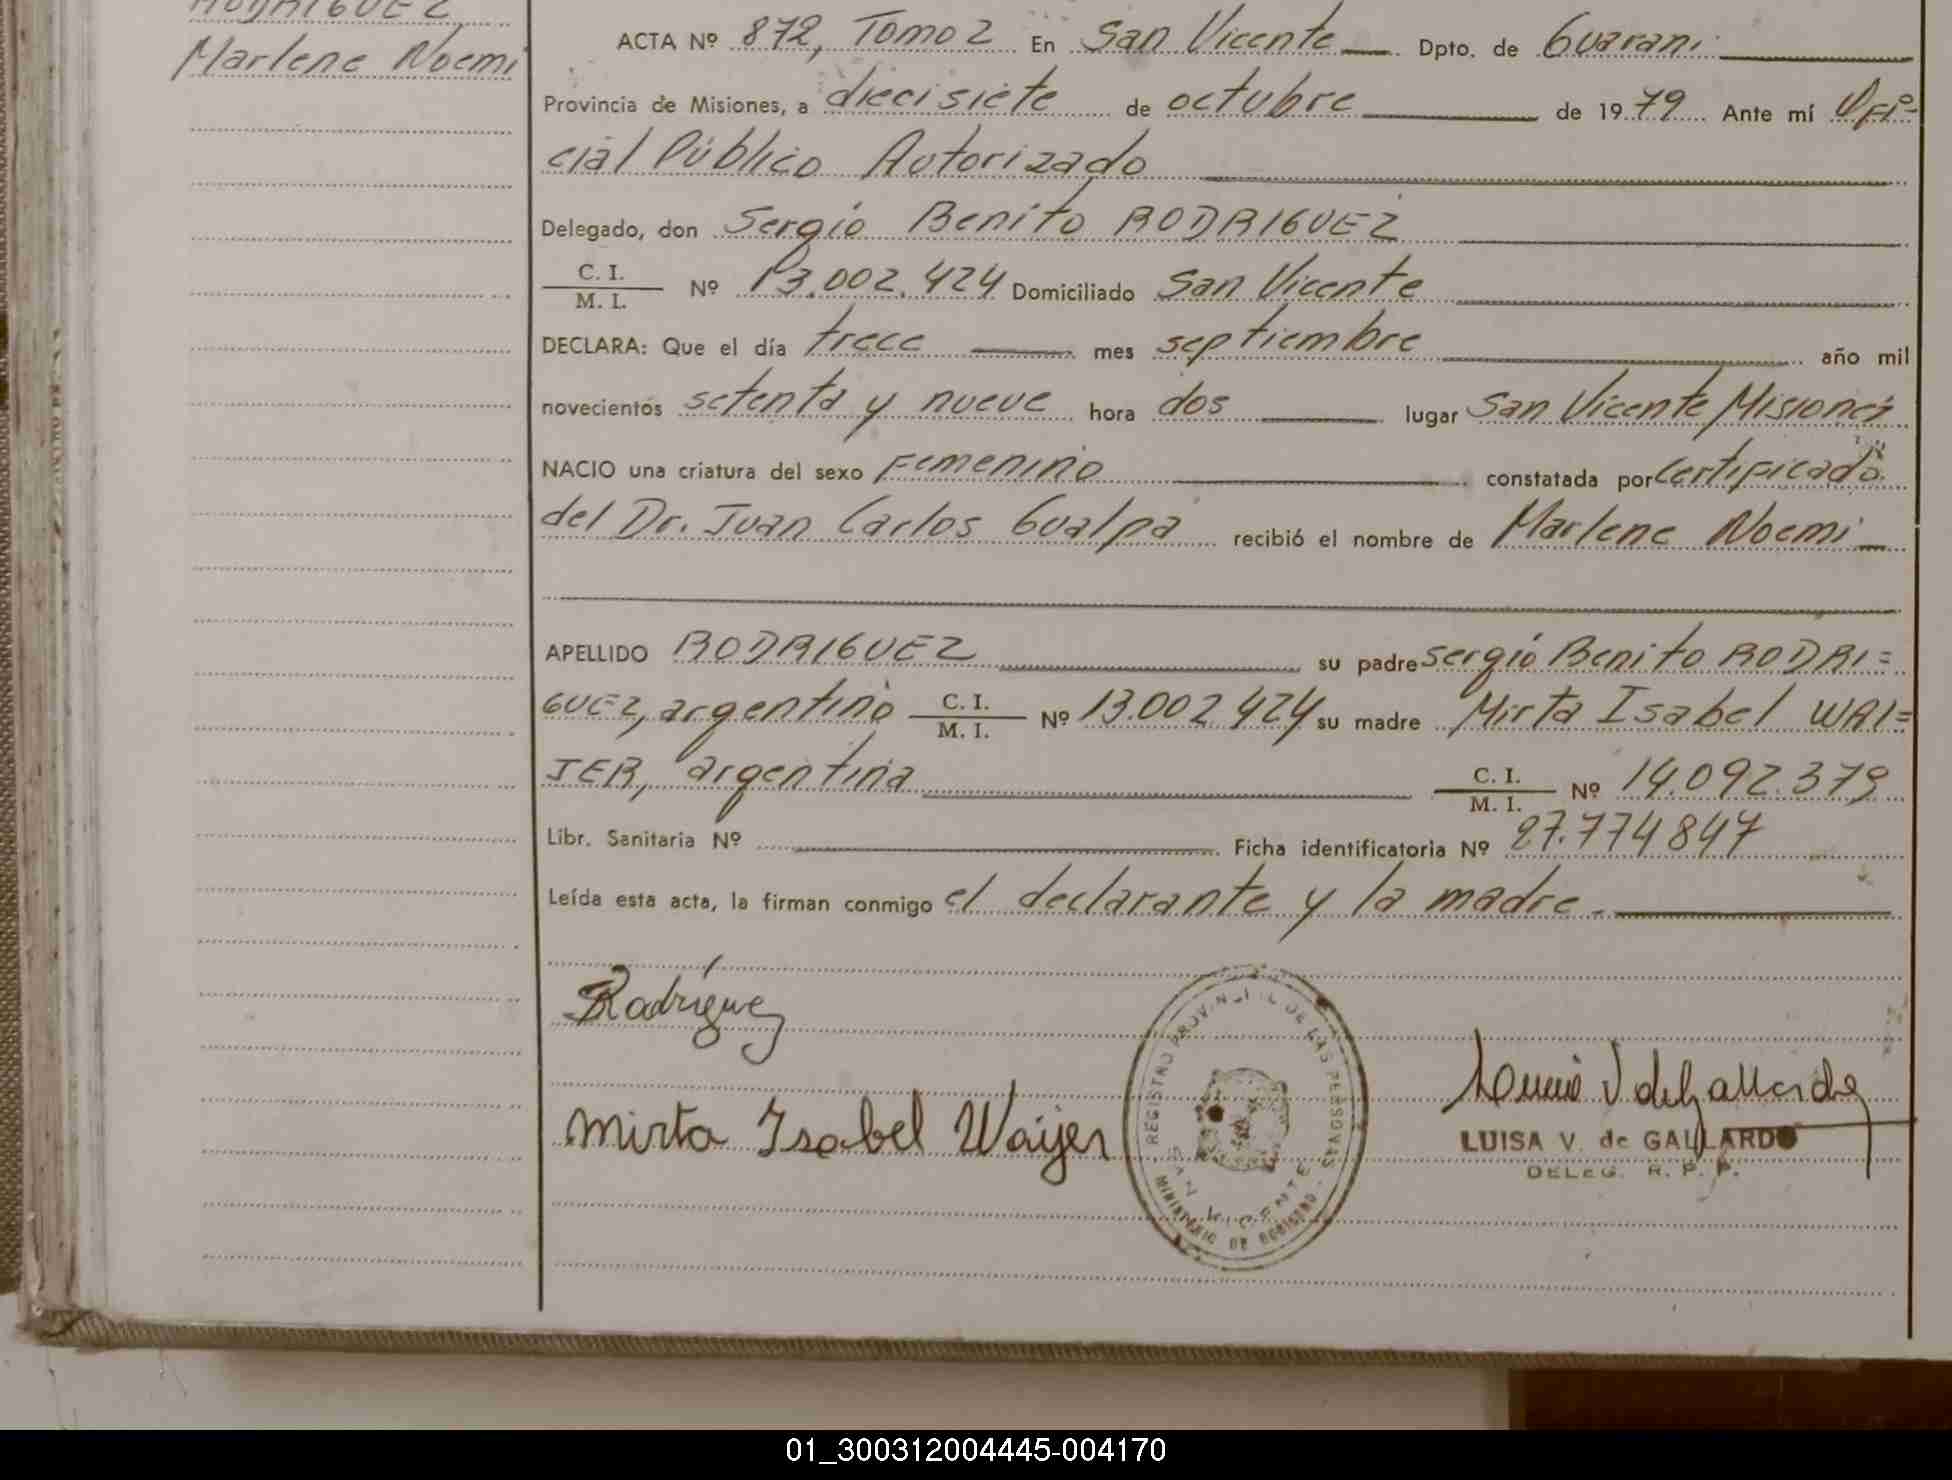 RODRIGUEZ
Marlene Noemi
ACTA Nº 872, Tomo 2 En San Vicente Dpto. de Guarani
Provincia de Misiones, a diecisiete de octubre de 1979 Ante mí Ofi-
cial Público Autorizado
Delegado, don Sergio Benito RODRIGUEZ
C. I.
M. I. Nº 13.002.424 Domiciliado San Vicente
DECLARA: Que el día trece mes septiembre año mil
novecientos setenta y nueve hora dos lugar San Vicente Misiones
NACIO una criatura del sexo Femenino constatada por Certificado
del Dr. Juan Carlos Gualpa recibió el nombre de Marlene Noemi
APELLIDO RODRIGUEZ su padre Sergio Benito RODRI=
GUEZ, argentino C. I. M. I. Nº 13.002.424 su madre Mirta Isabel WAI=
JER, argentina C. I. M. I. Nº 14.092.379
Libr. Sanitaria Nº Ficha identificatoria Nº 27.774847
Leída esta acta, la firman conmigo el declarante y la madre.
Rodríguez
Mirta Isabel Waijer
REGISTRO PROVINCIAL DE LAS PERSONAS
SAN VICENTE
MINISTERIO DE GOBIERNO
Luisa V de Gallardo
LUISA V. de GALLARDO
DELEG. R. P. P.
01_300312004445-004170